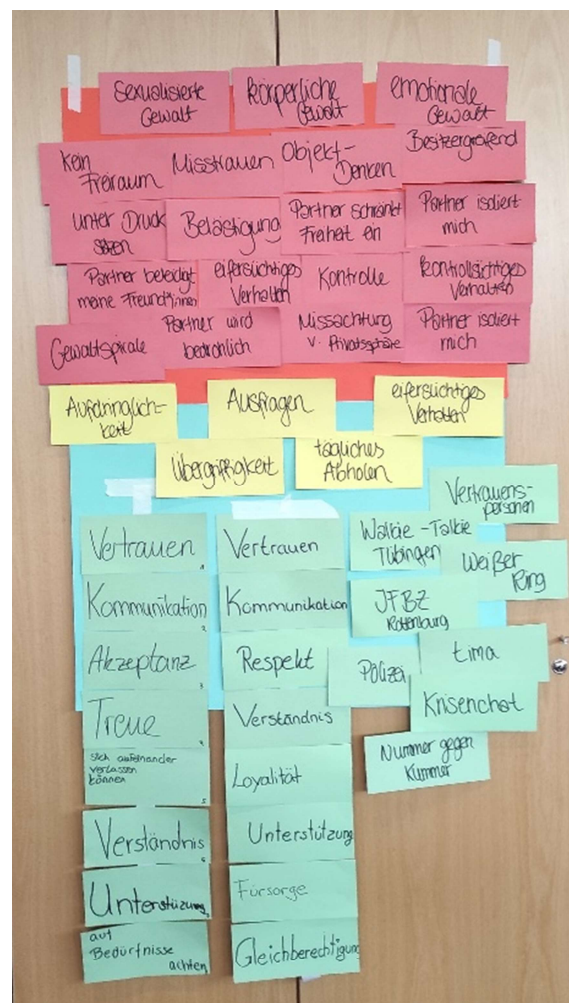 sexualisierte
Gewalt
körperliche
Gewalt
emotionale
Gewalt
Kein
Freiraum
Misstrauen
Objekt-
Denken
Besitzergreifend
unter Druck
setzen
Belästigung
Partner schränkt
Freiheit ein
Partner isoliert
mich
Partner beleidigt
meine Freund*innen
eifersüchtiges
Verhalten
Kontrolle
kontrollsüchtiges
Verhalten
Gewaltspirale
Partner wird
bedrohlich
Missachtung
v. Privatsphäre
Partner isoliert
mich
Aufdringlich-
keit
Ausfragen
eifersüchtiges
Verhalten
Übergriffigkeit
tägliches
Abholen
Vertrauen
1
Kommunikation
2
Akzeptanz
3
Treue
4
sich aufeinander
verlassen
können
5
Verständnis
6
Unterstützung
7
auf
Bedürfnisse
achten
Vertrauen
Kommunikation
Respekt
Verständnis
Loyalität
Unterstützung
Fürsorge
Gleichberechtigung
Vertrauens-
personen
Walkie-Talkie
Tübingen
Weißer
Ring
JFBZ
Rottenburg
tima
Polizei
Krisenchat
Nummer gegen
Kummer